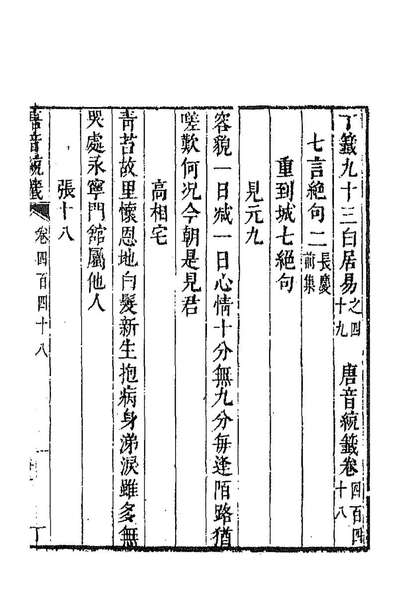 丁籤九十三白居易之四十九　唐音統籤卷四百四十八
七言絕句二長慶前集
重到城七絕句
見元九
容貌一日減一日心情十分無九分每逢陌路猶
嗟歎何況今朝是見君
高相宅
青苔故里懷恩地白髮新生抱病身涕淚雖多無
哭處永寧門館屬他人
張十八
唐音統籤　卷四百四十八　一